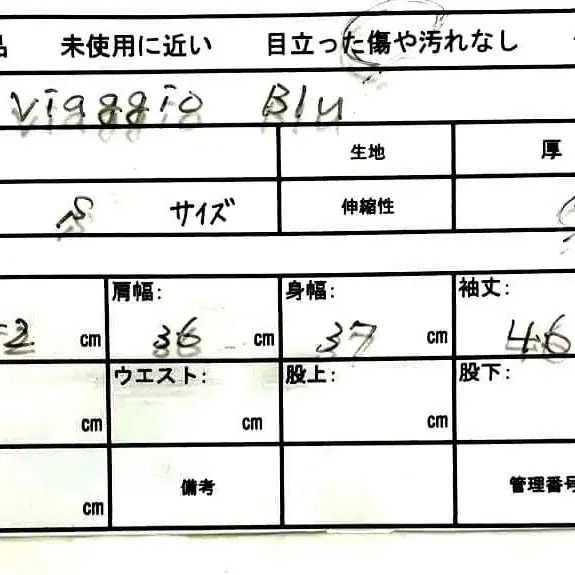 品 未使用に近い 目立った傷や汚れなし
Viaggio Blu
生地 厚
S サイズ 伸縮性
肩幅: 身幅: 袖丈:
2 cm 36 cm 37 cm 46
ウエスト: 股上: 股下:
cm cm cm
cm 備考 管理番号